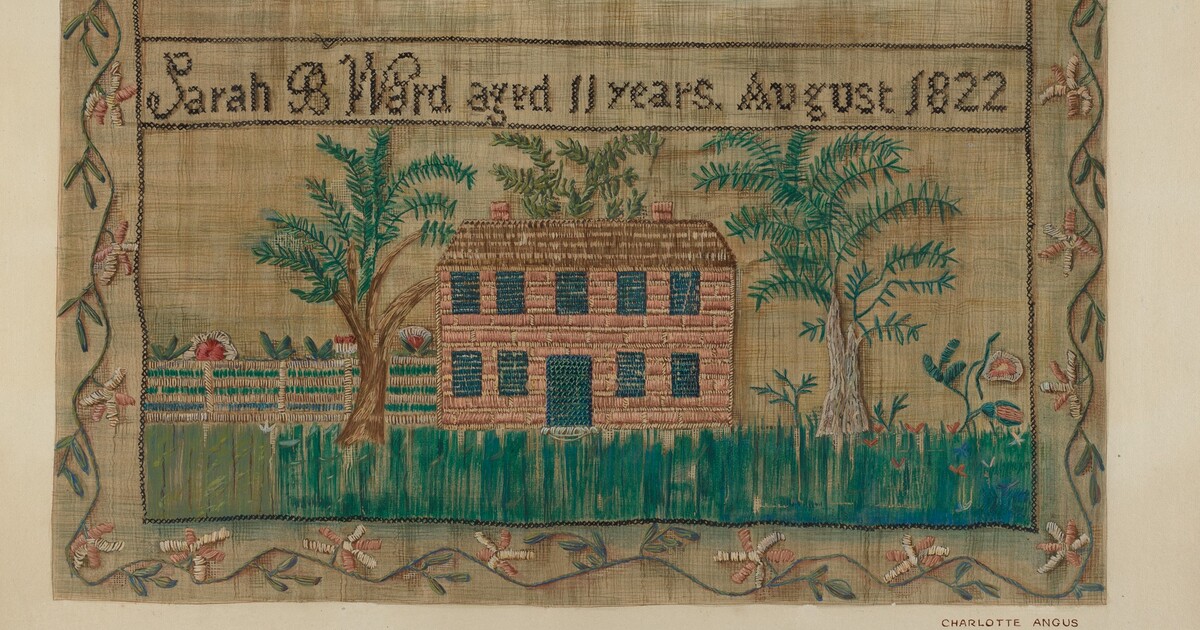 Sarah B Ward aged 11 years. August 1822
CHARLOTTE ANGUS